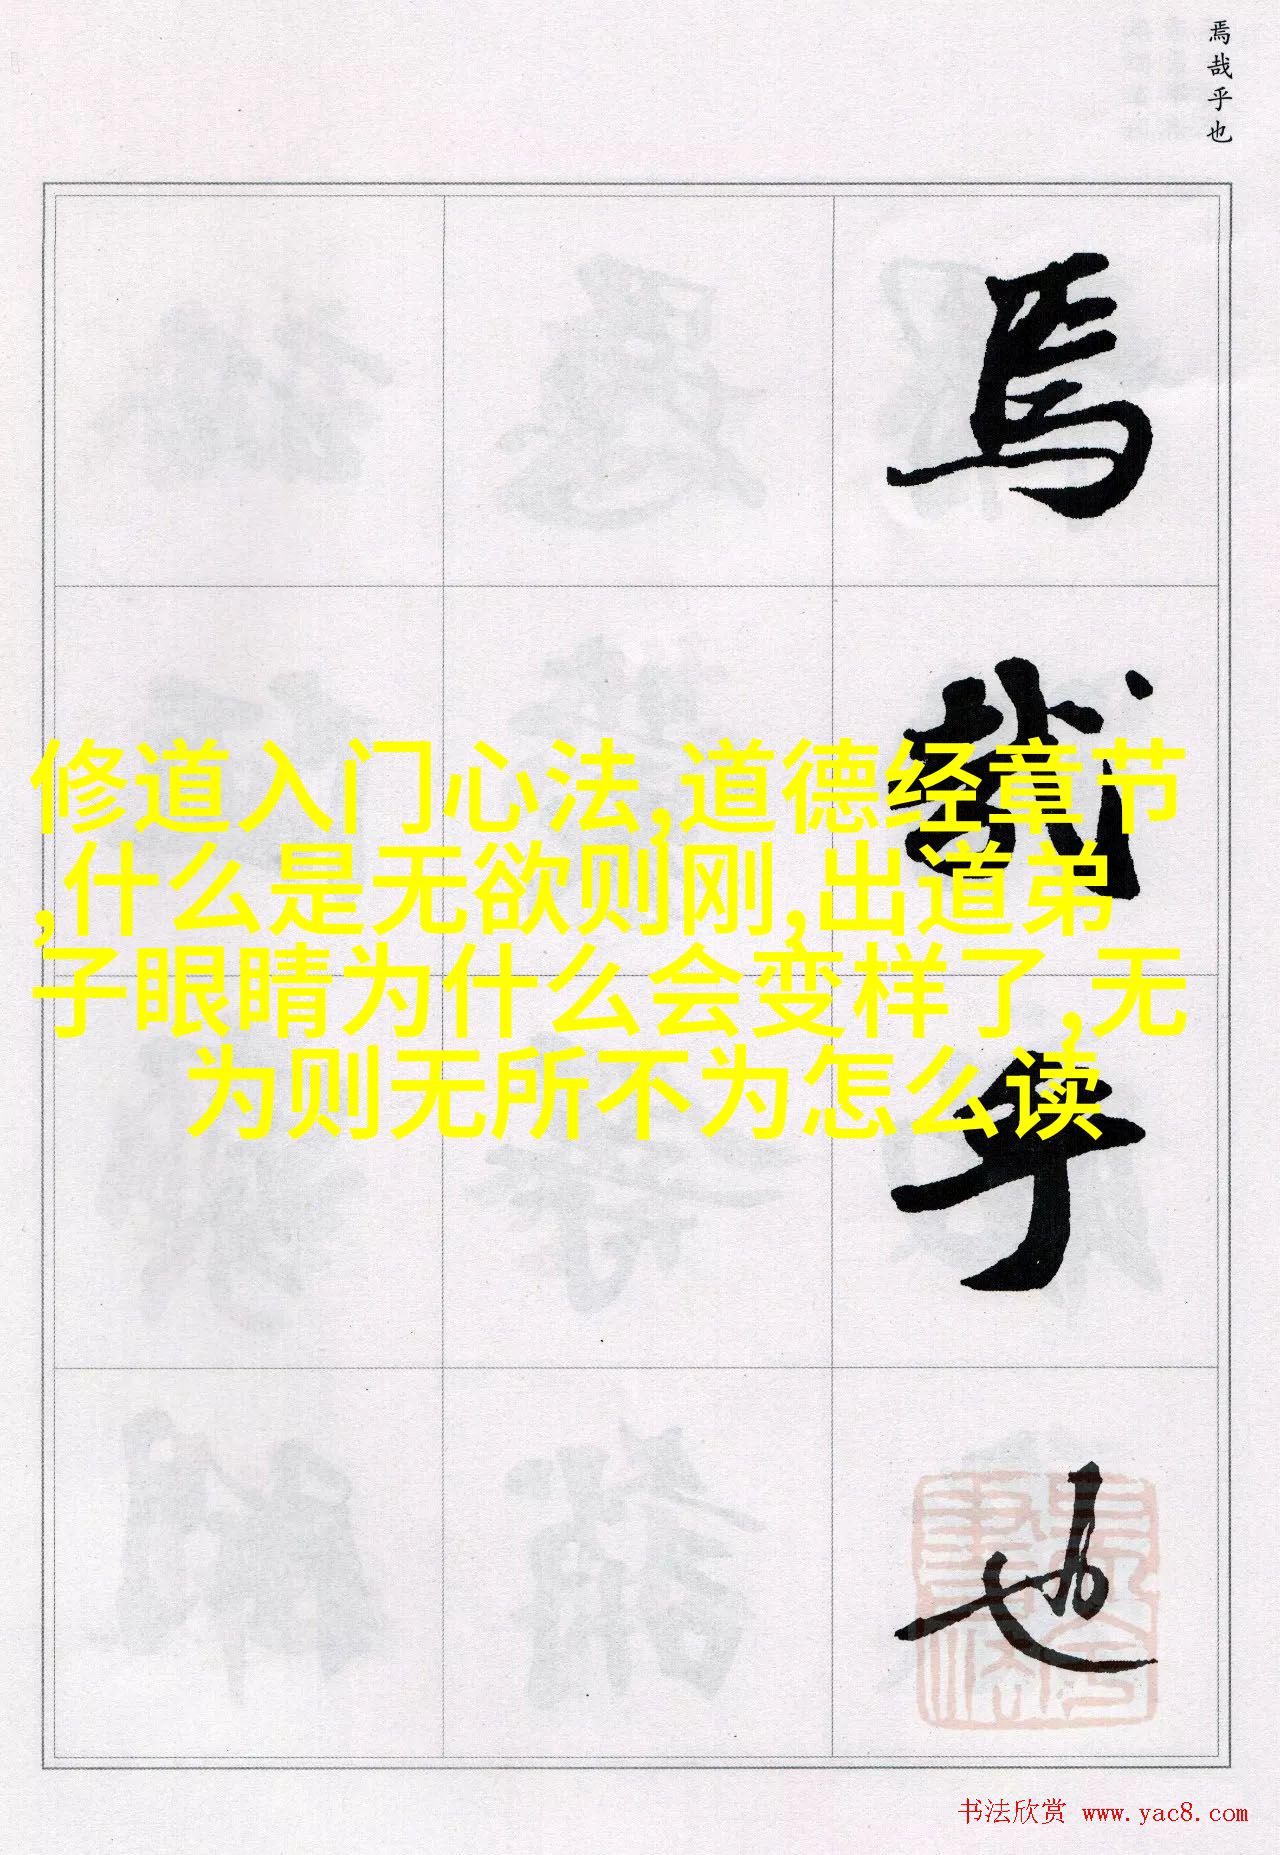 焉哉乎也
焉
哉
乎
也
修道入门心法,道德经章节
,什么是无欲则刚,出道弟
子眼睛为什么会变样了,无
为则无所不为怎么读
书法欣赏 www.yac8.com